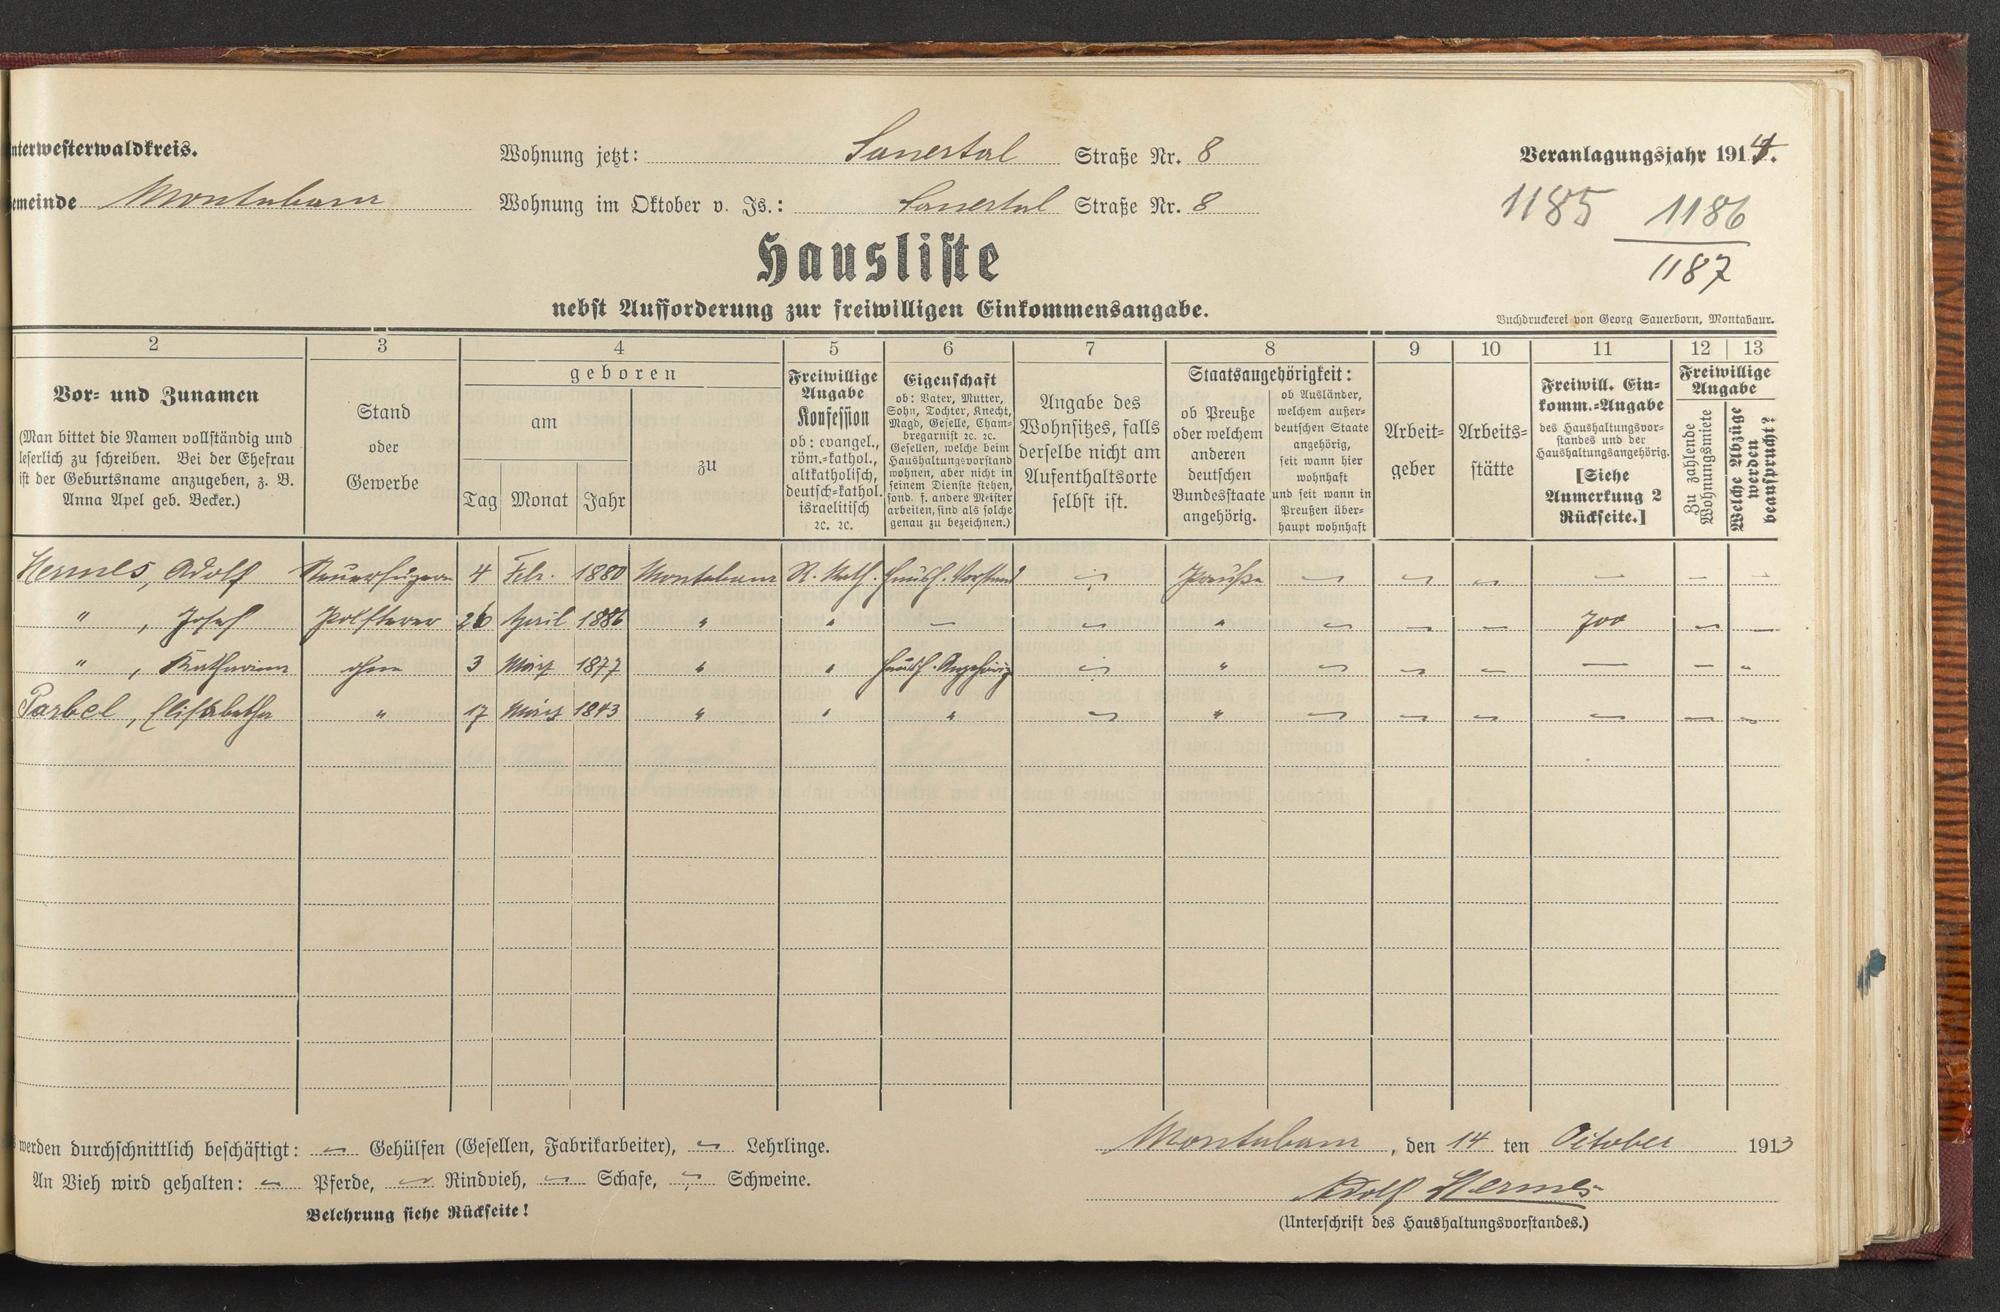 nterwesterwaldkreis.
Wohnung jetzt: Sauertal Straße Nr. 8
Veranlagungsjahr 1914.
emeinde Montabaur
Wohnung im Oktober v. Js.: Sauertal Straße Nr. 8
1185 1186
1187
Hausliste
nebst Aufforderung zur freiwilligen Einkommensangabe.
Buchdruckerei von Georg Sauerborn, Montabaur.
2 3 4 5 6 7 8 9 10 11 12 13
Vor- und Zunamen
(Man bittet die Namen vollständig und
leserlich zu schreiben. Bei der Ehefrau
ist der Geburtsname anzugeben, z. B.
Anna Apel geb. Becker.)
Stand
oder
Gewerbe
geboren
am
Tag Monat Jahr
zu
Freiwillige
Angabe
Konfession
ob: evangel.,
röm.-kathol.,
altkatholisch,
deutsch-kathol.
israelitisch
ꝛc. ꝛc.
Eigenschaft
ob: Vater, Mutter,
Sohn, Tochter, Knecht,
Magd, Geselle, Cham-
bregarnist ꝛc. ꝛc.
Gesellen, welche beim
Haushaltungsvorstand
wohnen, aber nicht in
seinem Dienste stehen,
sond. f. andere Meister
arbeiten, sind als solche
genau zu bezeichnen.)
Angabe des
Wohnsitzes, falls
derselbe nicht am
Aufenthaltsorte
selbst ist.
Staatsangehörigkeit:
ob Preuße
oder welchem
anderen
deutschen
Bundesstaate
angehörig.
ob Ausländer,
welchem außer-
deutschen Staate
angehörig,
seit wann hier
wohnhaft
und seit wann in
Preußen über-
haupt wohnhaft
Arbeit-
geber
Arbeits-
stätte
Freiwill. Ein-
komm.-Angabe
des Haushaltungsvor-
standes und der
Haushaltungsangehörig.
[Siehe
Anmerkung 2
Rückseite.]
Freiwillige
Angabe
Zu zahlende
Wohnungsmiete
Welche Abzüge
werden
beansprucht?
Hermes, Adolf 4 Febr. 1880 Montabaur R. Kath. Haush. Vorstand – Preuße – – – – – –
" , Josef Polsterer 26 April 1886 " " – – " – – – 700 – –
" , Katharina ohne 3 März 1877 " " Haush. Angehörig – " – – – – – "
Parbel, Elisabetha " 17 März 1843 " " " – " – – – – – –
werden durchschnittlich beschäftigt: – Gehülfen (Gesellen, Fabrikarbeiter), – Lehrlinge.
Montabaur, den 14 ten October 1913
An Vieh wird gehalten: – Pferde, – Rindvieh, – Schafe, – Schweine.
Adolf Hermes
Belehrung siehe Rückseite!
(Unterschrift des Haushaltungsvorstandes.)